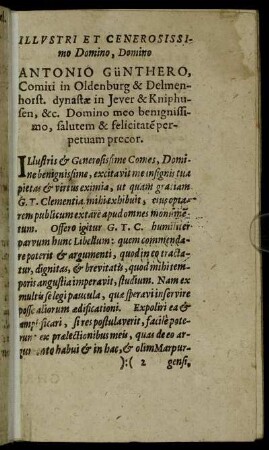 ILLVSTRI ET CENEROSISSI-
mo Domino, Domino
ANTONIO GüNTHERO,
Comiti in Oldenburg & Delmen-
horst. dynastæ in Jever & Kniphu-
sen, &c. Domino meo benignissi-
mo, salutem & felicitatē per-
petuam precor.
Illustris & Generosissime Comes, Domi-
ne benignissime, excitavit me insignis tua
pietas & virtus eximia, ut quam gratiam
G. T. Clementia mihi exhibuit, ejus optā-
rem publicum extare apud omnes monumē-
tum. Offero igitur G. T. C. humiliter
parvum hunc Libellum: quem commenda-
re poterit & argumenti, quod in eo tracta-
tur, dignitas, & brevitatis, quod mihi tem-
poris angustia imperavit, studium. Nam ex
multis selegi paucula, quæ speravi inservire
posse aliorum ædificationi. Expoliri ea &
amplificari, si res postulaverit, facilè pote-
runt ex prælectionibus meis, quas de eo ar-
gumento habui & in hac, & olim Marpur-
):( 2 gensi,